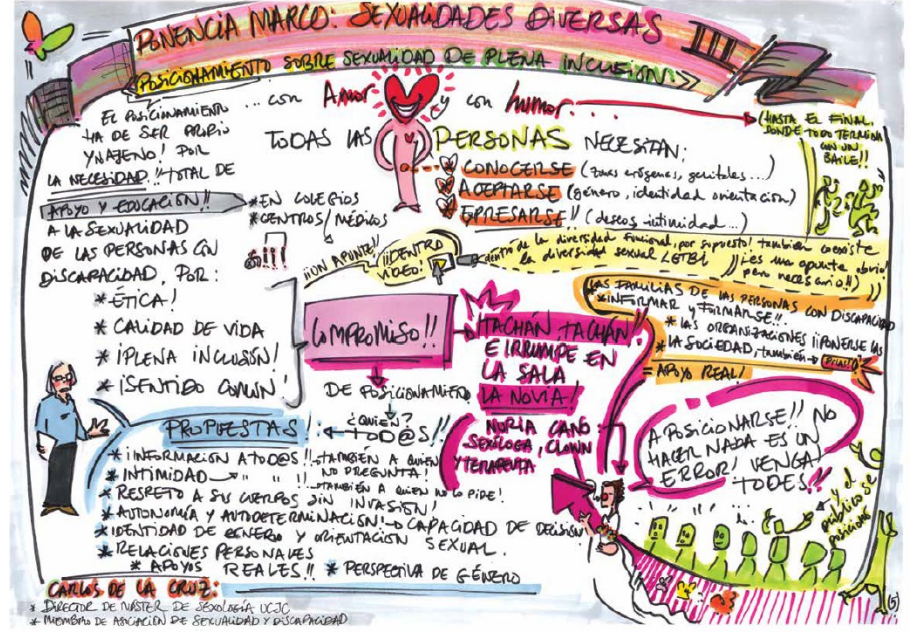 PONENCIA MARCO: SEXUALIDADES DIVERSAS III
POSICIONAMIENTO SOBRE SEXUALIDAD DE PLENA INCLUSIÓN.
... con Amor y con humor
EL POSICIONAMIENTO
HA DE SER PROPIO
Y NAJENO! POR
LA NECESIDAD!! TOTAL DE
APOYO Y EDUCACIÓN!!
A LA SEXUALIDAD
DE LAS PERSONAS CON
DISCAPACIDAD, POR:
* ÉTICA!
* CALIDAD DE VIDA
* ¡PLENA INCLUSIÓN!
* ¡SENTIDO COMÚN!
* EN COLEGIOS
* CENTROS MÉDICOS
TODAS LAS PERSONAS NECESITAN:
CONOCERSE (zonas erógenas, genitales...)
ACEPTARSE (género, identidad orientación)
EXPRESARSE!! (deseos intimidad...)
(HASTA EL FINAL.
DONDE TODO TERMINA
CON UN
BAILE!!
¡¡UN APUNTE!!
¡¡DENTRO
VIDEO!
dentro de la diversidad funcional, por supuesto! también coexiste
la diversidad sexual LGTBI
¡¡es un apunte obvio!
pero necesario!!)
COMPROMISO!!
DE POSICIONAMIENTO
¿QUIEN?
TOD@S!!
TACHÁN TACHÁN!!
E IRRUMPE EN
LA SALA
LA NOVIA!
NURIA CANO:
SEXÓLOGA, CLOWN
Y TERAPEUTA
LAS FAMILIAS DE LAS PERSONAS CON DISCAPACIDAD
* INFORMAR Y FORMARSE!!
* LAS ORGANIZACIONES ¡PONERSE LAS
* LA SOCIEDAD, también
= APOYO REAL!
A POSICIONARSE!! NO
HACER NADA ES UN
ERROR! VENGA
TODES!!
... y el
público se
posiciona
PROPUESTAS
* ¡INFORMACIÓN A TOD@S!! TAMBIÉN A QUIEN
NO PREGUNTA!
* INTIMIDAD " " !! TAMBIÉN A QUIEN NO LO PIDE!
* RESPETO A SUS CUERPOS SIN
INVASIÓN!
* AUTONOMÍA Y AUTODETERMINACIÓN! CAPACIDAD DE DECISIÓN
* IDENTIDAD DE GÉNERO Y ORIENTACIÓN
SEXUAL.
* RELACIONES PERSONALES
* APOYOS REALES!! * PERSPECTIVA DE GÉNERO
CARLOS DE LA CRUZ:
* DIRECTOR DE MÁSTER DE SEXOLOGÍA UCJC
* MIEMBRO DE ASOCIACIÓN DE SEXUALIDAD Y DISCAPACIDAD